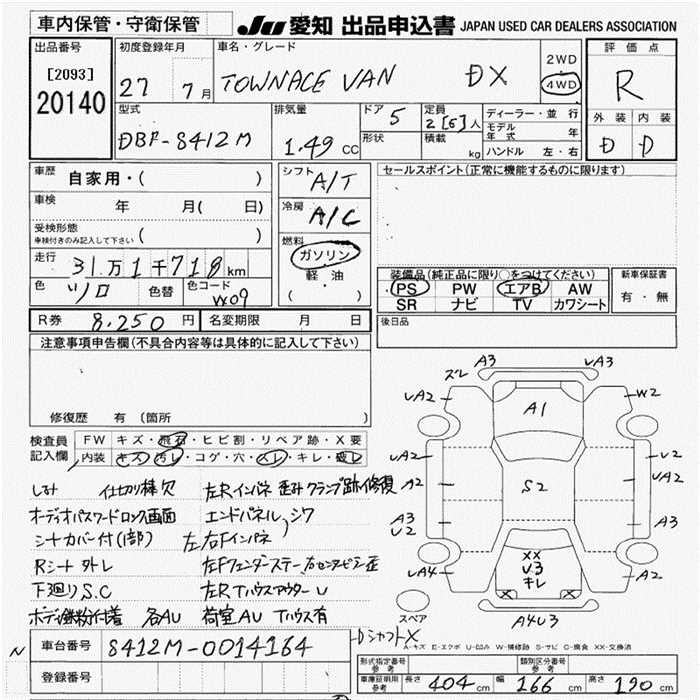 車内保管・守衛保管 JU 愛知 出品申込書 JAPAN USED CAR DEALERS ASSOCIATION
出品番号 [2093] 20140
初度登録年月 27 7月
車名・グレード TOWNACE VAN DX
2WD 4WD
評価点 R
外装 内装 D D
型式 DBF-S412M
排気量 1.49 CC
ドア 5 形状
定員 2[5]人 積載 kg
ディーラー・並行
モデル年式 年
ハンドル 左・右
車歴 自家用・( )
車検 年 月( 日)
受検形態 車検付きのみ記入して下さい ( )
走行 31万1千718km
色 シロ 色替 色コード W09
シフト A/T
冷房 A/C
燃料 ガソリン 軽・油 ( )
セールスポイント(正常に機能するものに限ります)
装備品(純正品に限り○をつけてください)
PS PW エアB AW
SR ナビ TV カワシート
新車保証書 有・無
R券 8,250円 名変期限 月 日
後日品
注意事項申告欄(不具合内容等は具体的に記入して下さい)
修復歴 有 (箇所 )
検査員記入欄 FW キズ・飛石・ヒビ割・リペア跡・X要
内装 キズ・汚レ・コゲ・穴・スレ・キレ・破レ
しみ 仕切り棒欠 左Rインパネ 歪み クランプ跡 修復
オーディオパスワードロック画面 エンドパネル シワ
シートカバー付(1部) 左右Fインパネ
Rシート外レ 左Fフェンダーステー
下廻りS.C 左Rタハウスアウター U
ボデー鉄粉付着 各AU 荷室AU Tハウス有
DシャフトX
ズレ A3 UA3
UA2 A1 W2
UA2 U2
A2 S2 UA2
A3 U2 A3
UA4 XX U3 キレ A2
X X
スペア A4U3
A-キズ E-エクボ U-凹み W-補修跡 S-サビ C-腐食 XX-交換済
N 車台番号 S412M-0014164
登録番号
形式指定番号 参考 類別区分番号 参考
車庫証明用 参考 長さ 404cm 幅 166cm 高さ 190cm